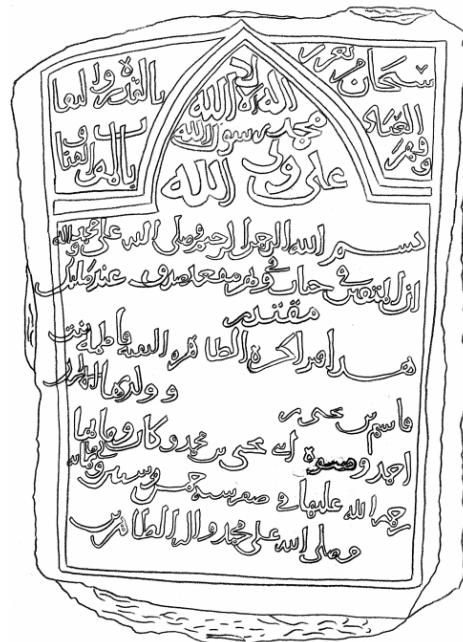 سبحان من تعزز
بالقدرة و البقا
وقهر العباد
بالموت و الفنا
لا
اله الا الله
محمد رسول الله
علي ولي الله
بسم الله الرحمن الرحيم وصلى الله على محمد واله
ان المتقين في جنات ونهر في مقعد صدق عند مليك
مقتدر
هذا قبر الحرة الطاهرة فاطمة بنت
وولدها
قاسم بن
احمد بن يحيى بن محمد وكان وفاتها
رحمة الله عليها في صفر سنة خمس وستين
وصلى الله على محمد واله الطاهرين